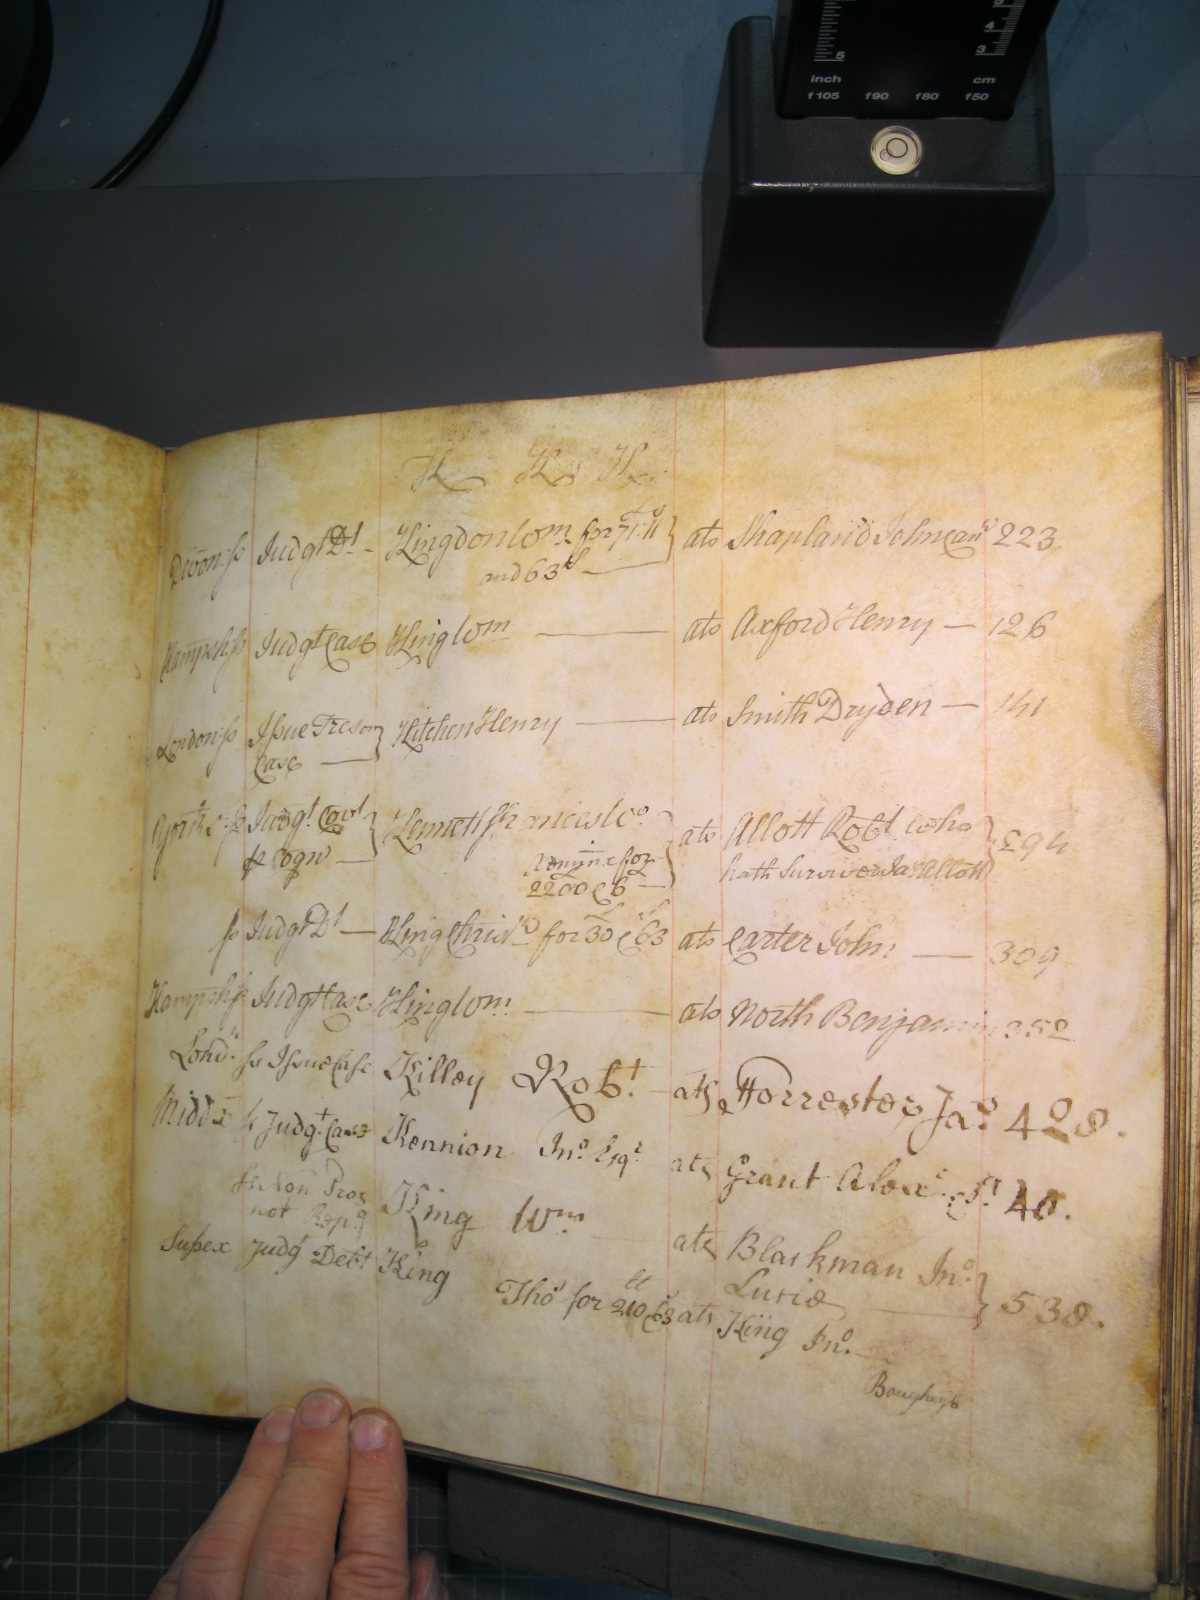 5 4 3
inch cm
f105 f90 f80 f50
K K K
Devon: ss Judgt Dt Kingdon Wm for 71:11 ats Shapland John 223
and 63s
Hampsh ss Judgt Case King Wm ats Axford Henry 126
London: ss Issue Treson Kitchen Henry ats Smith Dryden 141
Case
Yorksh: ss Judgt. Covt Kennett Francis Wo ats Allott Robt. who 294
p Cogn for hath Survived Jas Allott
2200 & 6
ss Judgt Dt King Chrisr for 30 & 63 ats Carter John 309
Hampsh ss Judgt Case King Wm ats North Benjamin 352
Londn ss Issue Case Killey Robt. ats Forrester Jas 428.
Middx ss Judgt. Case Kennion Jno. Esqr ats Grant Alexr 40.
ss Non Pros King Wm ats Blackman Jno. 538.
not Lucie
Sussex Judgt Debt King Thos for 210 & 63 ats King Jno.
Boughey